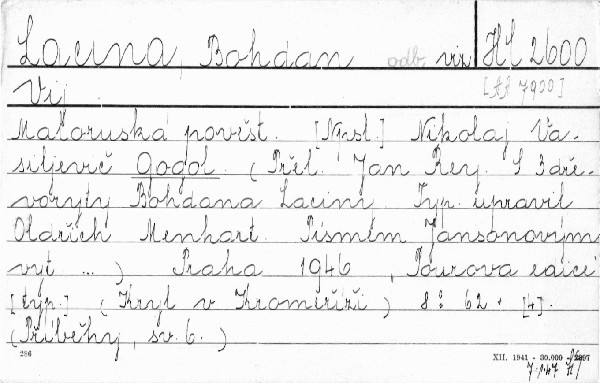 Lacina, Bohdan odb. viz HL 2600
Vij. [HL 7900]
Maloruská pověst. [Násl.] Nikolaj Va-
siljevič Gogol. (Přel. Jan Rey. S 3 dře-
voryty Bohdana Laciny. Typ. upravil
Oldřich Menhart. Písmem Jansonovým
vyt ...) Praha 1946, Pourova edice
[typ.] (Kryl v Kroměříži) 8° 62 + [4].
(Příběhy, sv. 6.)
286 XII. 1941 - 30.000 -